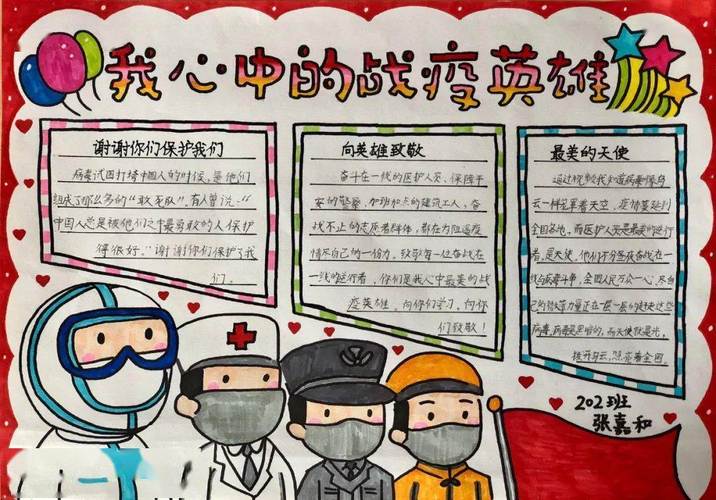 我心中的战疫英雄
谢谢你们保护我们
病毒试图打垮中国人的时候，是他们
组成了那么多的“敢死队”。有人曾说：“
中国人总是被他们之中最勇敢的人保护
得很好。”谢谢你们保护了我
们。
向英雄致敬
奋斗在一线的医护人员、保障平
安的警察、加班加点的建筑工人、奋
战不止的志愿者群体，都在为阻遏疫
情尽自己的一份力。致敬每一位奋战在
一线的逆行者，你们是我心中最美的战
疫英雄。向你们学习，向你
们致敬！
最美的天使
通过视频我知道病毒像乌
云一样笼罩着天空，疫情蔓延到
全国各地。而医护人员是最美的逆行
者，是天使。他们不分昼夜奋战在一
线与病毒斗争，全国人民万众一心，尽自
己的微薄力量正在一层一层的赶快这些
病毒。病毒是黑暗的，而天使就是光，
拨开乌云，照亮着全国
202班
张嘉和